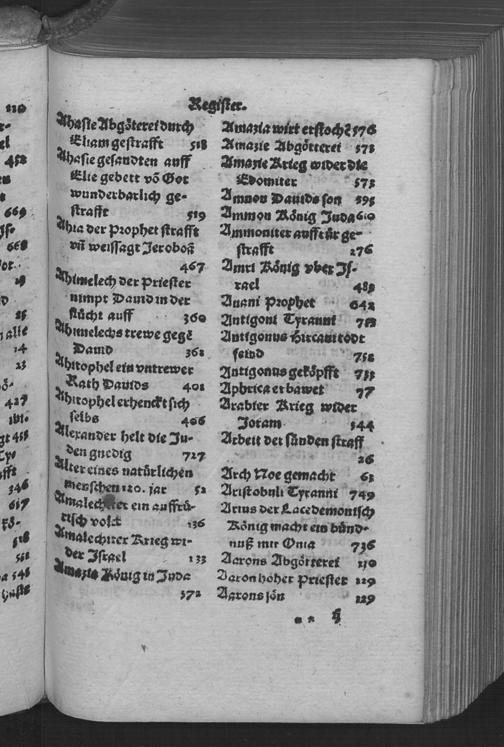 Register.
Ahasie Abgötterei durch
Eliam gestrafft 518
Ahasie gesandten auff
Elie gebett vō Got
wunderbarlich ge-
strafft 519
Ahia der Prophet strafft
vñ weissagt Jeroboā
467
Ahimelech der Priester
nimpt Dauid in der
flücht auff 360
Ahimelechs trewe gegē
Dauid 361
Ahitophel ein vntrewer
Rath Dauids 401
Ahitophel erhenckt sich
selbs 406
Alexander helt die Ju-
den gnedig 727
Alter eines natürlichen
menschen 120. jar 52
Amalechiter ein auffrü-
risch volck 136
Amalechiter Krieg wi-
der Israel 133
Amazie König in Juda
572
Amazia wirt erstochē 576
Amazie Abgötterei 573
Amazie Krieg wider die
Edomiter 573
Amnon Dauids son 395
Ammon König Juda 610
Ammoniter auffrür ge-
strafft 276
Amri König vber Is-
rael 483
Anani Prophet 642
Antigoni Tyranni 752
Antigonus Hircani todt
feind 752
Antigonus geköpfft 753
Aphrica erbawet 77
Arabier Krieg wider
Joram 544
Arbeit der sünden straff
26
Arch Noe gemacht 61
Aristobuli Tyranni 749
Arius der Lacedemonisch
König macht ein bünd-
nuß mit Onia 736
Aarons Abgötterei 150
Aaron hoher Priester 129
Aarons sön 129
110
452
669
668
19
25
14
23
427
346
617
518
551
545